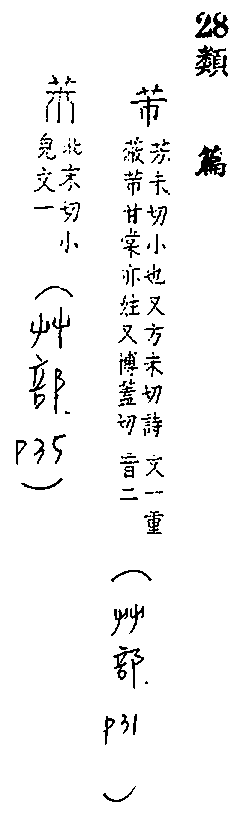 28類 篇
芾
芳未切小也又方未切詩 文一重
蔽芾甘棠亦姓又博蓋切 音二
(艸部. P31)
北末切小
皃文一
(艸部. P35)